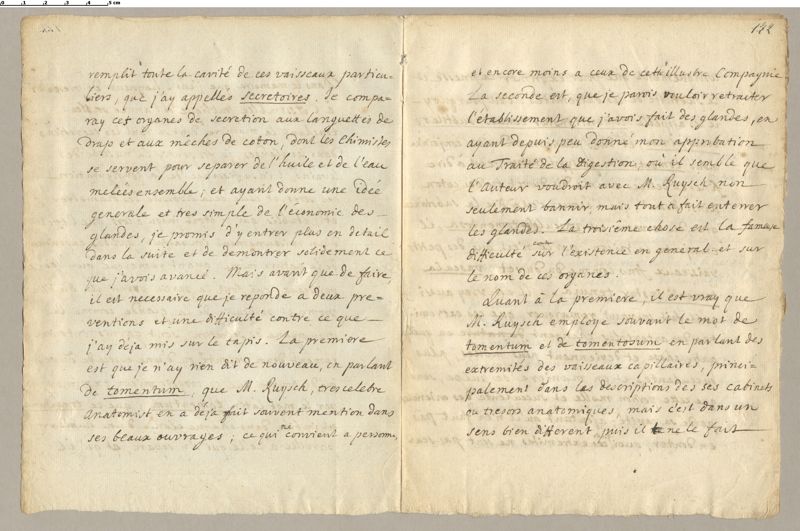 0 1 2 3 4 5 cm
remplit toute la cavité de ces vaisseaux particu-
liers, que j'ay appellés secretoires. Je compa-
ray cet organes de secretion aux languettes de
drap et aux mêches de coton, dont les Chimistes
se servent pour separer de l'huile et de l'eau
melées ensemble; et ayant donne une idée
generale et tres simple de l'économie des
glandes, je promis d'y entrer plus en detail
dans la suite et de demontrer solidement ce
que j'avois avancé. Mais avant que de faire,
il est necessaire que je reponde a deux pre-
ventions et une difficulté contre ce que
j'ay deja mis sur le tapis. La premiere
est que je n'ay rien dit de nouveau, en parlant
de tomentum, que M. Ruysch, trescelebre
Anatomist en a deja fait souvent mention dans
ses beaux ouvrages; ce qui ne convient a personne,
142
et encore moins a ceux de cette illustre Compagnie
La seconde est, que je parois vouloir retracter
l'établissement que j'avois fait des glandes, en
ayant depuis peu donné mon approbation
au Traité de la Digestion, où il semble que
l'Auteur voudroit avec M. Ruysch non
seulement bannir mais tout a fait enterrer
les glandes. La troisiême chose est la fameuse
difficulté sur l'existence en general et sur
le nom de ces organes.
Quant à la premiere, il est vray que
M. Ruysch employe souvant le mot de
tomentum et de tomentosum en parlant des
extremités des vaisseaux capillaires, princi-
palement dans les descriptions des ses cabinets
ou tresors anatomiques, mais c'est dans un
sens bien different, puis il ne le fait